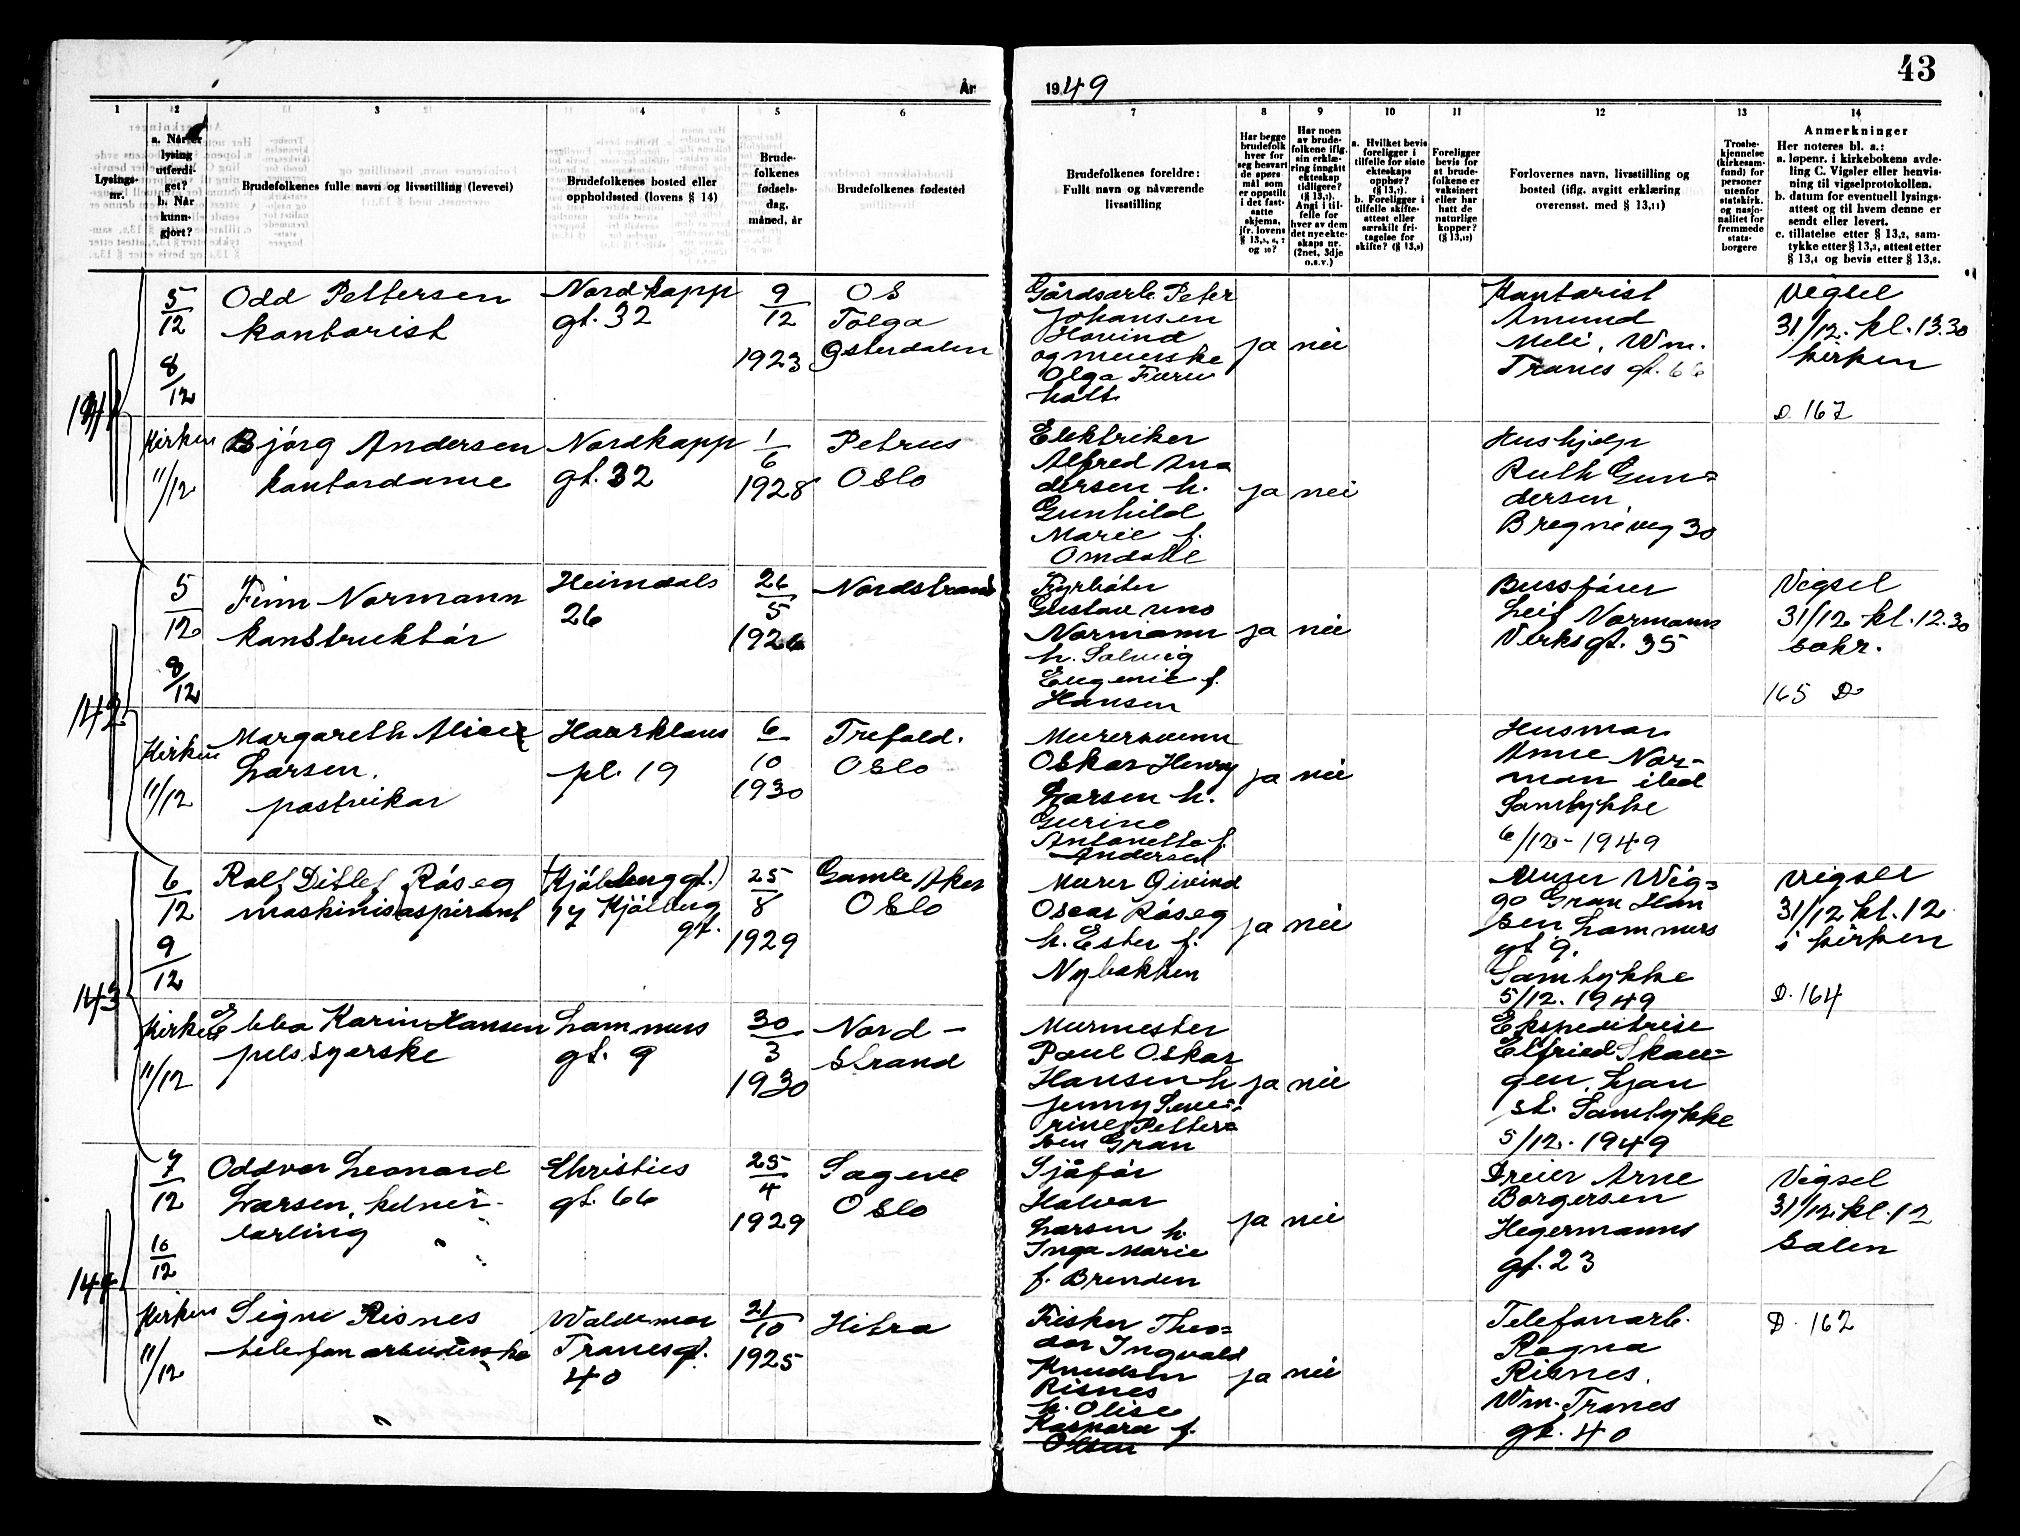 43
År
1949
1 2 3 4 5 6 7 8 9 10 11 12 13 14
Lysings-
nr.
a. Når er
lysing
utferdi-
get?
b. Når
kunn-
gjort?
Brudefolkenes fulle navn og livsstilling (levevei)
Brudefolkenes bosted eller
oppholdssted (lovens § 14)
Brude-
folkenes
fødsels-
dag,
måned, år
Brudefolkenes fødested
Brudefolkenes foreldre:
Fullt navn og nåværende
livsstilling
Har begge
brudefolk
hver for
seg besvart
de spørs-
mål som
er oppstilt
i det fast-
satte
skjema,
jfr. lovens
og 10?
Har noen
av brude-
folkene iflg.
sin erklæ-
ring inngått
ekteskap
tidligere?
(§ 13,1).
Angi i til-
felle for
hver av dem
det nye ekte-
skaps nr.
(2net, 3dje
o.s.v.)
a. Hvilket bevis
foreligger i
tilfelle for siste
ekteskaps
opphør?
(§ 13,7).
b. Foreligger i
tilfelle skifte-
attest eller
særskilt fri-
tagelse for
skifte? (§ 13,8)
Foreligger
bevis for
at brude-
folkene er
vaksinert
eller har
hatt de
naturlige
kopper?
(§ 13,12)
Forlovernes navn, livsstilling og
bosted (iflg. avgitt erklæring
overensst. med § 13,11)
Trosbe-
kjennelse
(kirkesam-
fund) for
personer
utenfor
statskirk.
og nasjo-
nalitet for
fremmede
stats-
borgere
Anmerkninger
Her noteres bl. a.:
a. løpenr. i kirkebokens avde-
ling C. Vigsler eller henvis-
ning til vigselprotokollen.
b. datum for eventuell lysings-
attest og til hvem denne er
sendt eller levert.
c. tillatelse etter § 13,2, sam-
tykke etter § 13,3, attest etter
§ 13,4 og bevis etter § 13,8.
141
5/12
8/12
Odd Pettersen
kontorist
Nordkapp
gt. 32
9/12
1923
Os
Tolga
Østerdalen
Gårdsarb. Peter
Johansen
Hovind
og meierske
Olga Furu
holt
ja nei
Kontorist
Amund
Meli, Wm.
Tranes gt. 66
Vigsel
31/12. kl. 13.30
kirken
D. 167
Kirken
11/12
Bjørg Andersen
kontordame
Nordkapp
gt. 32
1/6
1928
Petrus
Oslo
Elektriker
Alfred An=
dersen h.
Gunhild
Marie f.
Omdahl
ja nei
Hushjelp
Ruth Gun=
dersen,
Bregneveg 30
142
5/12
8/12
Finn Normann
konstruktør
Heimdals
26
26/5
1926
Nordstrand
Fyrbøter
Gustav Uno
Normann
h. Solveig
Eugenie f.
Hansen
ja nei
Bussfører
Leif Normann
Verksgt. 35
Vigsel
31/12 kl. 12.30
sakr.
165 D
Kirken
11/12
Margareth Alice
Larsen,
postvikar
Haarklaus
pl. 19
6/10
1930
Trefold.
Oslo
Murersvenn
Oskar Henry
Larsen h.
Gurine
Antonette f.
Andersen
ja nei
Husmor
Anne Nor-
man ibid
Samtykke
6/12-1949
143
6/12
9/12
Rolf Ditlef Røseg
maskinistaspirant
(Kjølberggt.)
17 Kjølberg
gt.
25/8
1929
Gamle Aker
Oslo
Murer Øivind
Oscar Røseg
h. Ester f.
Nybakken
ja nei
Murer Wig=
go Gran Han
sen Lammers
gt 9.
Samtykke
5/12. 1949
Vigsel
31/12 kl. 12
i kirken
D. 164
Kirken
11/12
Ebba Karin Hansen
pelssyerske
Lammers
gt. 9
30/3
1930
Nord-
strand
Murmester
Paul Oskar
Hansen h
Jenny Seve-
rine Petter=
sen Gran
ja nei
Ekspeditrise
Elfried Skau=
gen, Ljan
st. Samtykke
5/12. 1949
144
7/12
10/12
Oddvar Leonard
Larsen, kelner-
lærling
Christies
gt. 66
25/4
1929
Sagene
Oslo
Sjåfør
Halvor
Larsen h.
Inga Marie
f. Brenden
ja nei
Dreier Arne
Borgersen
Hegermanns
gt. 23
Vigsel
31/12 kl. 12
Salen
Kirken
11/12
Signe Risnes
telefonarbeiderske
Waldemar
Tranesgt.
40
21/10
1925
Hitra
Fisker Theo=
dor Ingvald
Knudsen
Risnes
h. Olise
Kaspara f.
Olsen
ja nei
Telefonarb.
Ragna
Risnes,
Wm. Tranes
gt. 40
D. 162